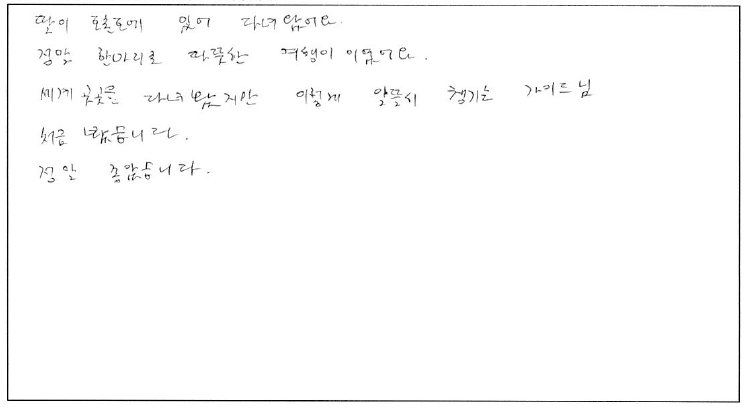 딸이 호촐호에 있어 다녀왔어요.
정말 한마리로 따뜻한 여행이 이였어요.
세계 곳곳을 다녀봤지만 이렇게 알뜰시 챙기는 가이드님
처음 봤습니다.
정말 좋았습니다.